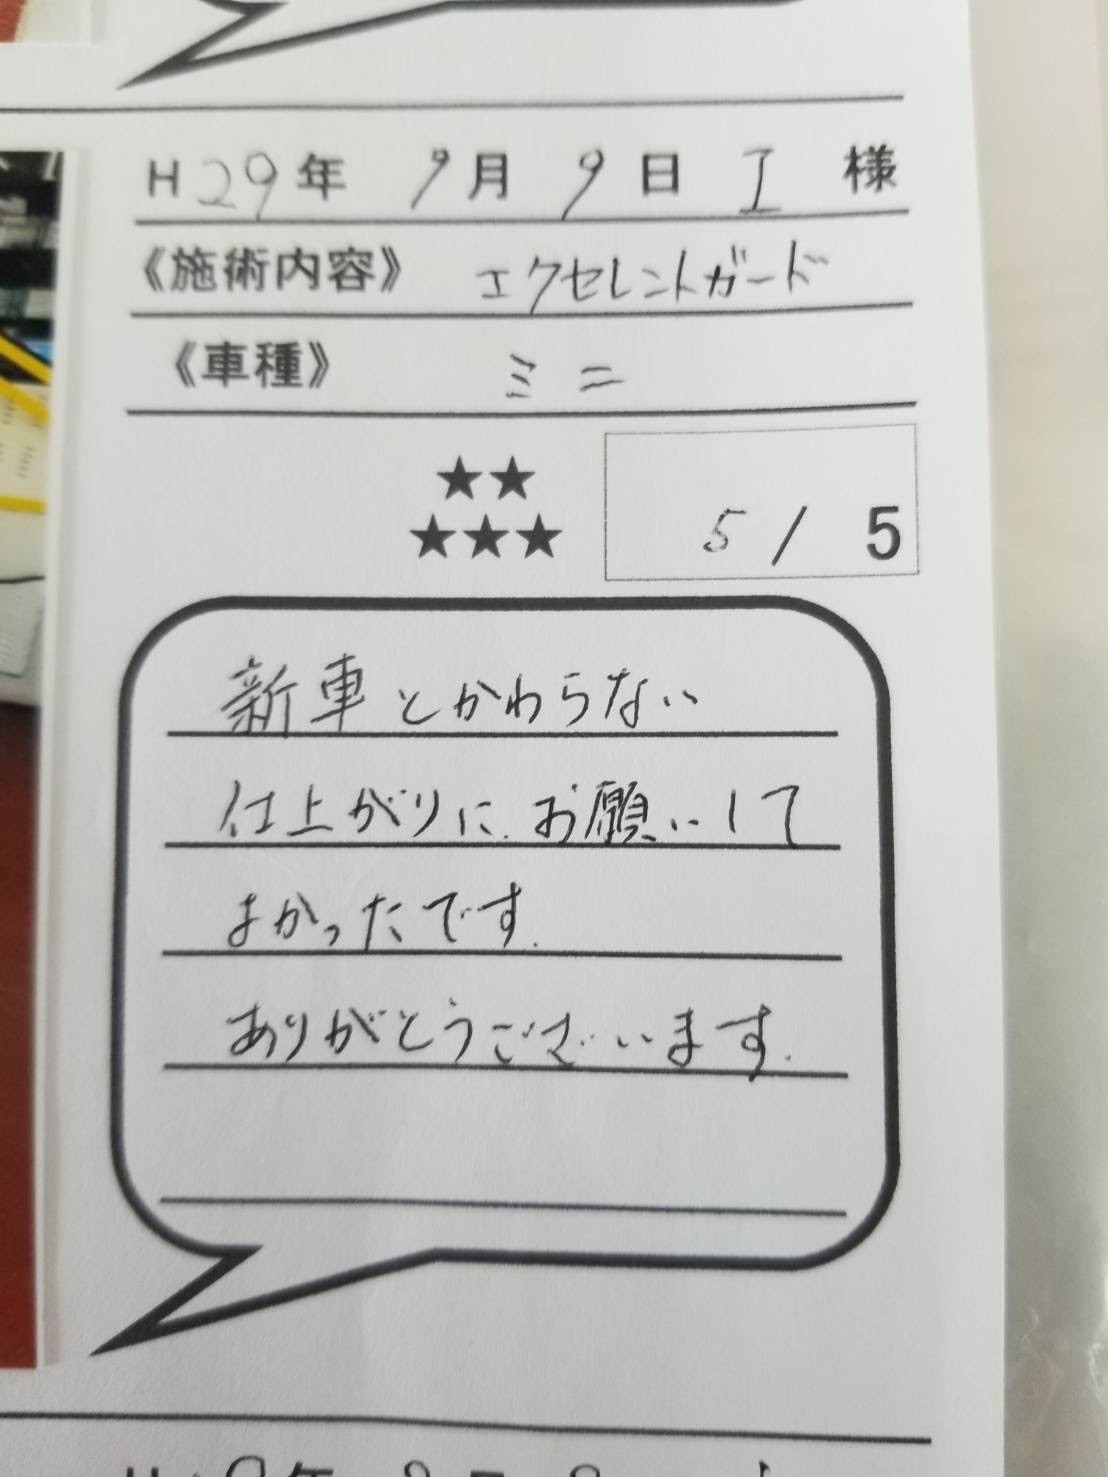 H29年 9月 9日 I 様
《施術内容》 エクセレントガード
《車種》 ミニ
★★
★★★
5 / 5
新車とかわらない
仕上がりに.お願いして
よかったです.
ありがとうございます.